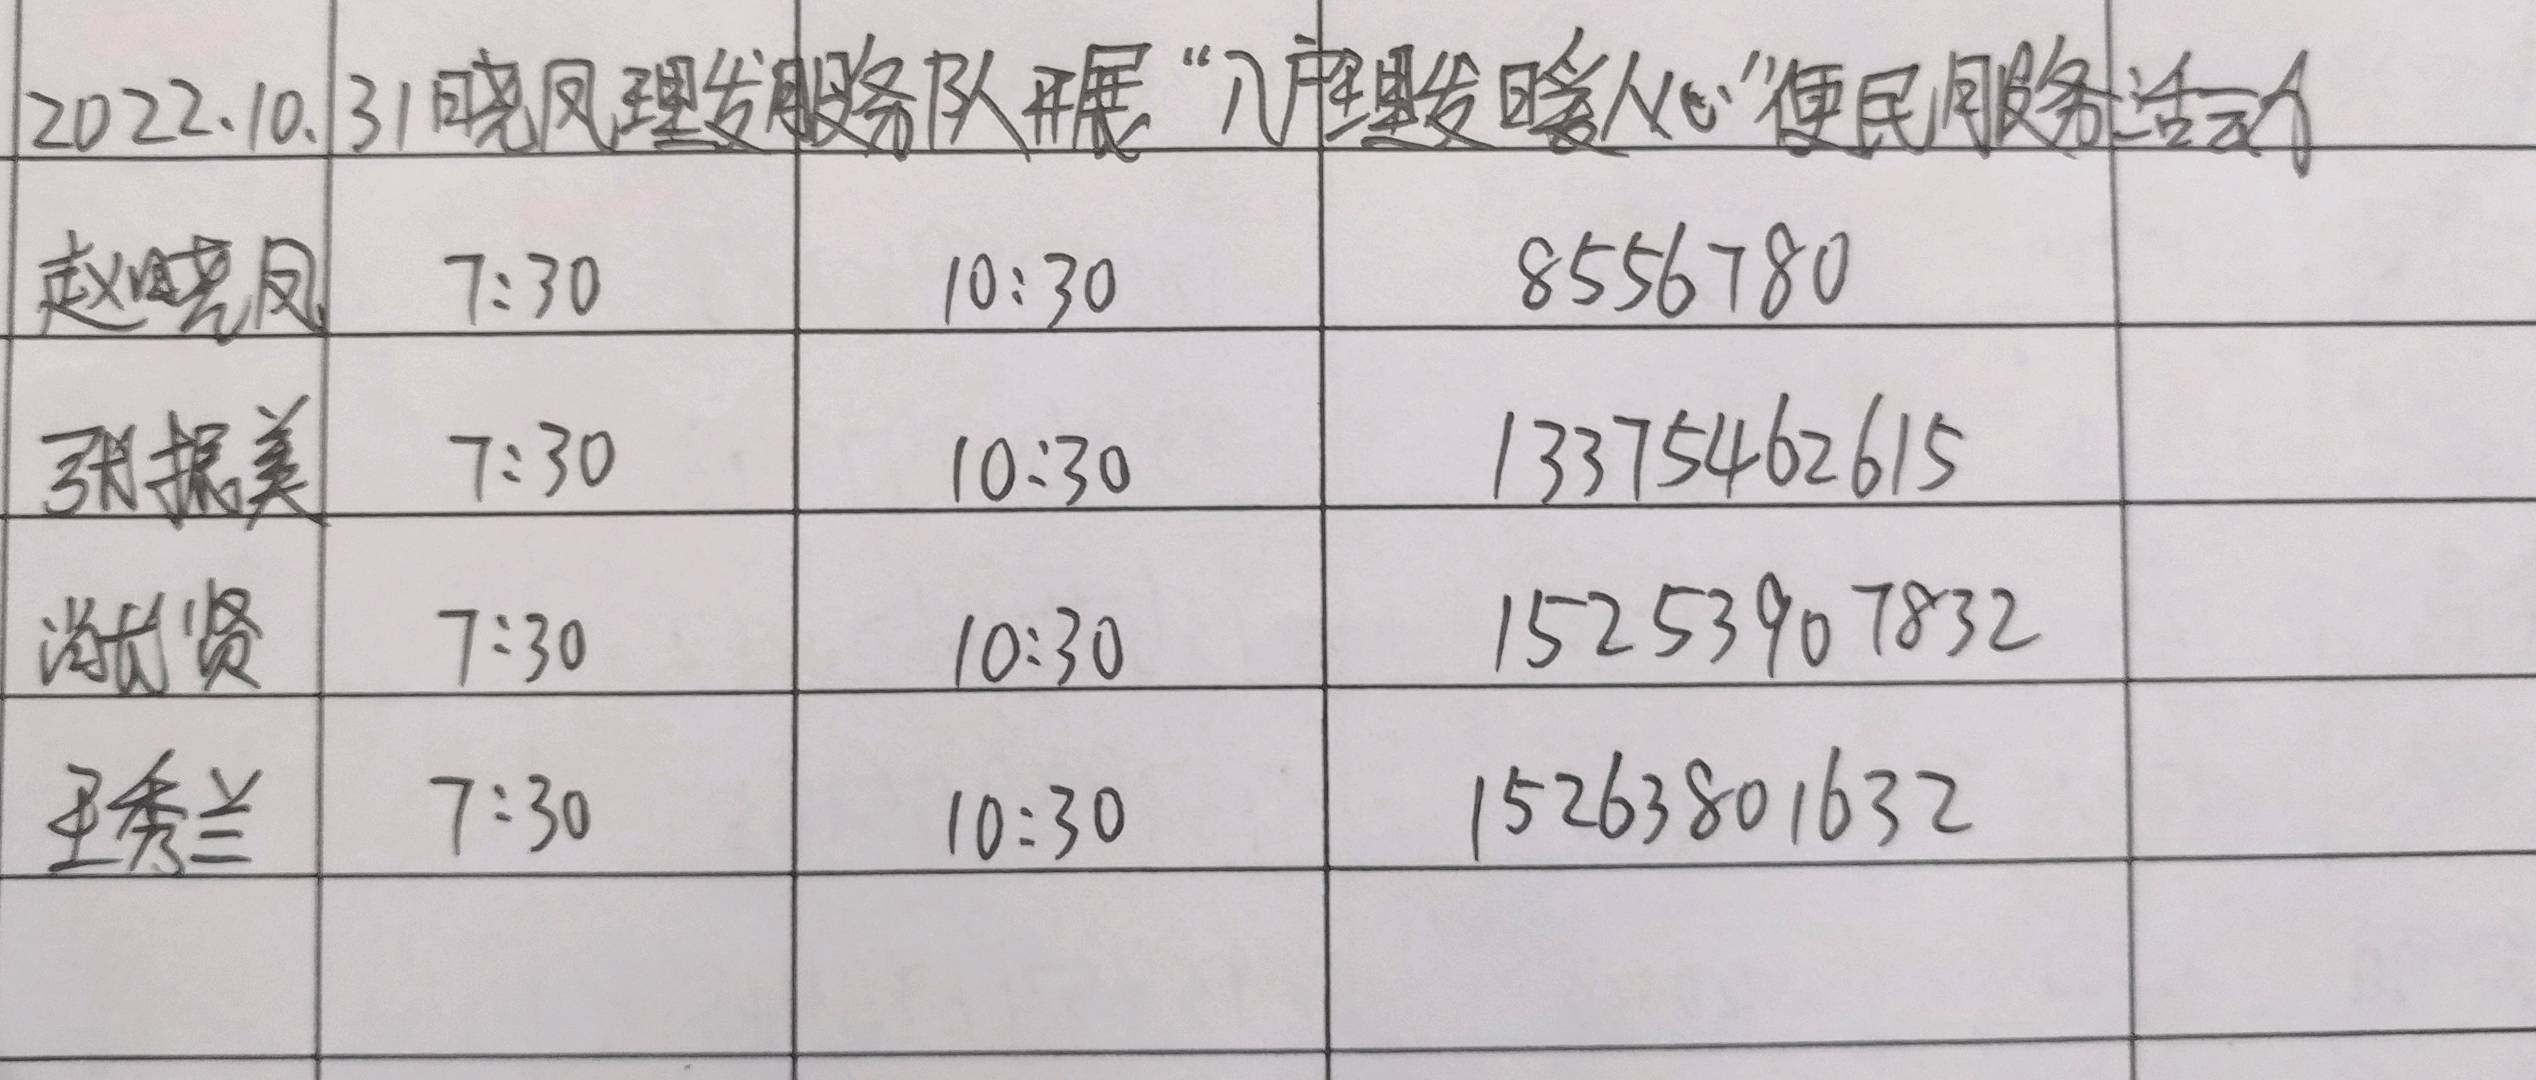 2022.10.31晓凤理发服务队开展“入户理发暖人心”便民服务活动
赵晓凤 7:30 10:30 8556780
张振美 7:30 10:30 13375462615
贤 7:30 10:30 15253907832
王秀兰 7:30 10:30 15263801632